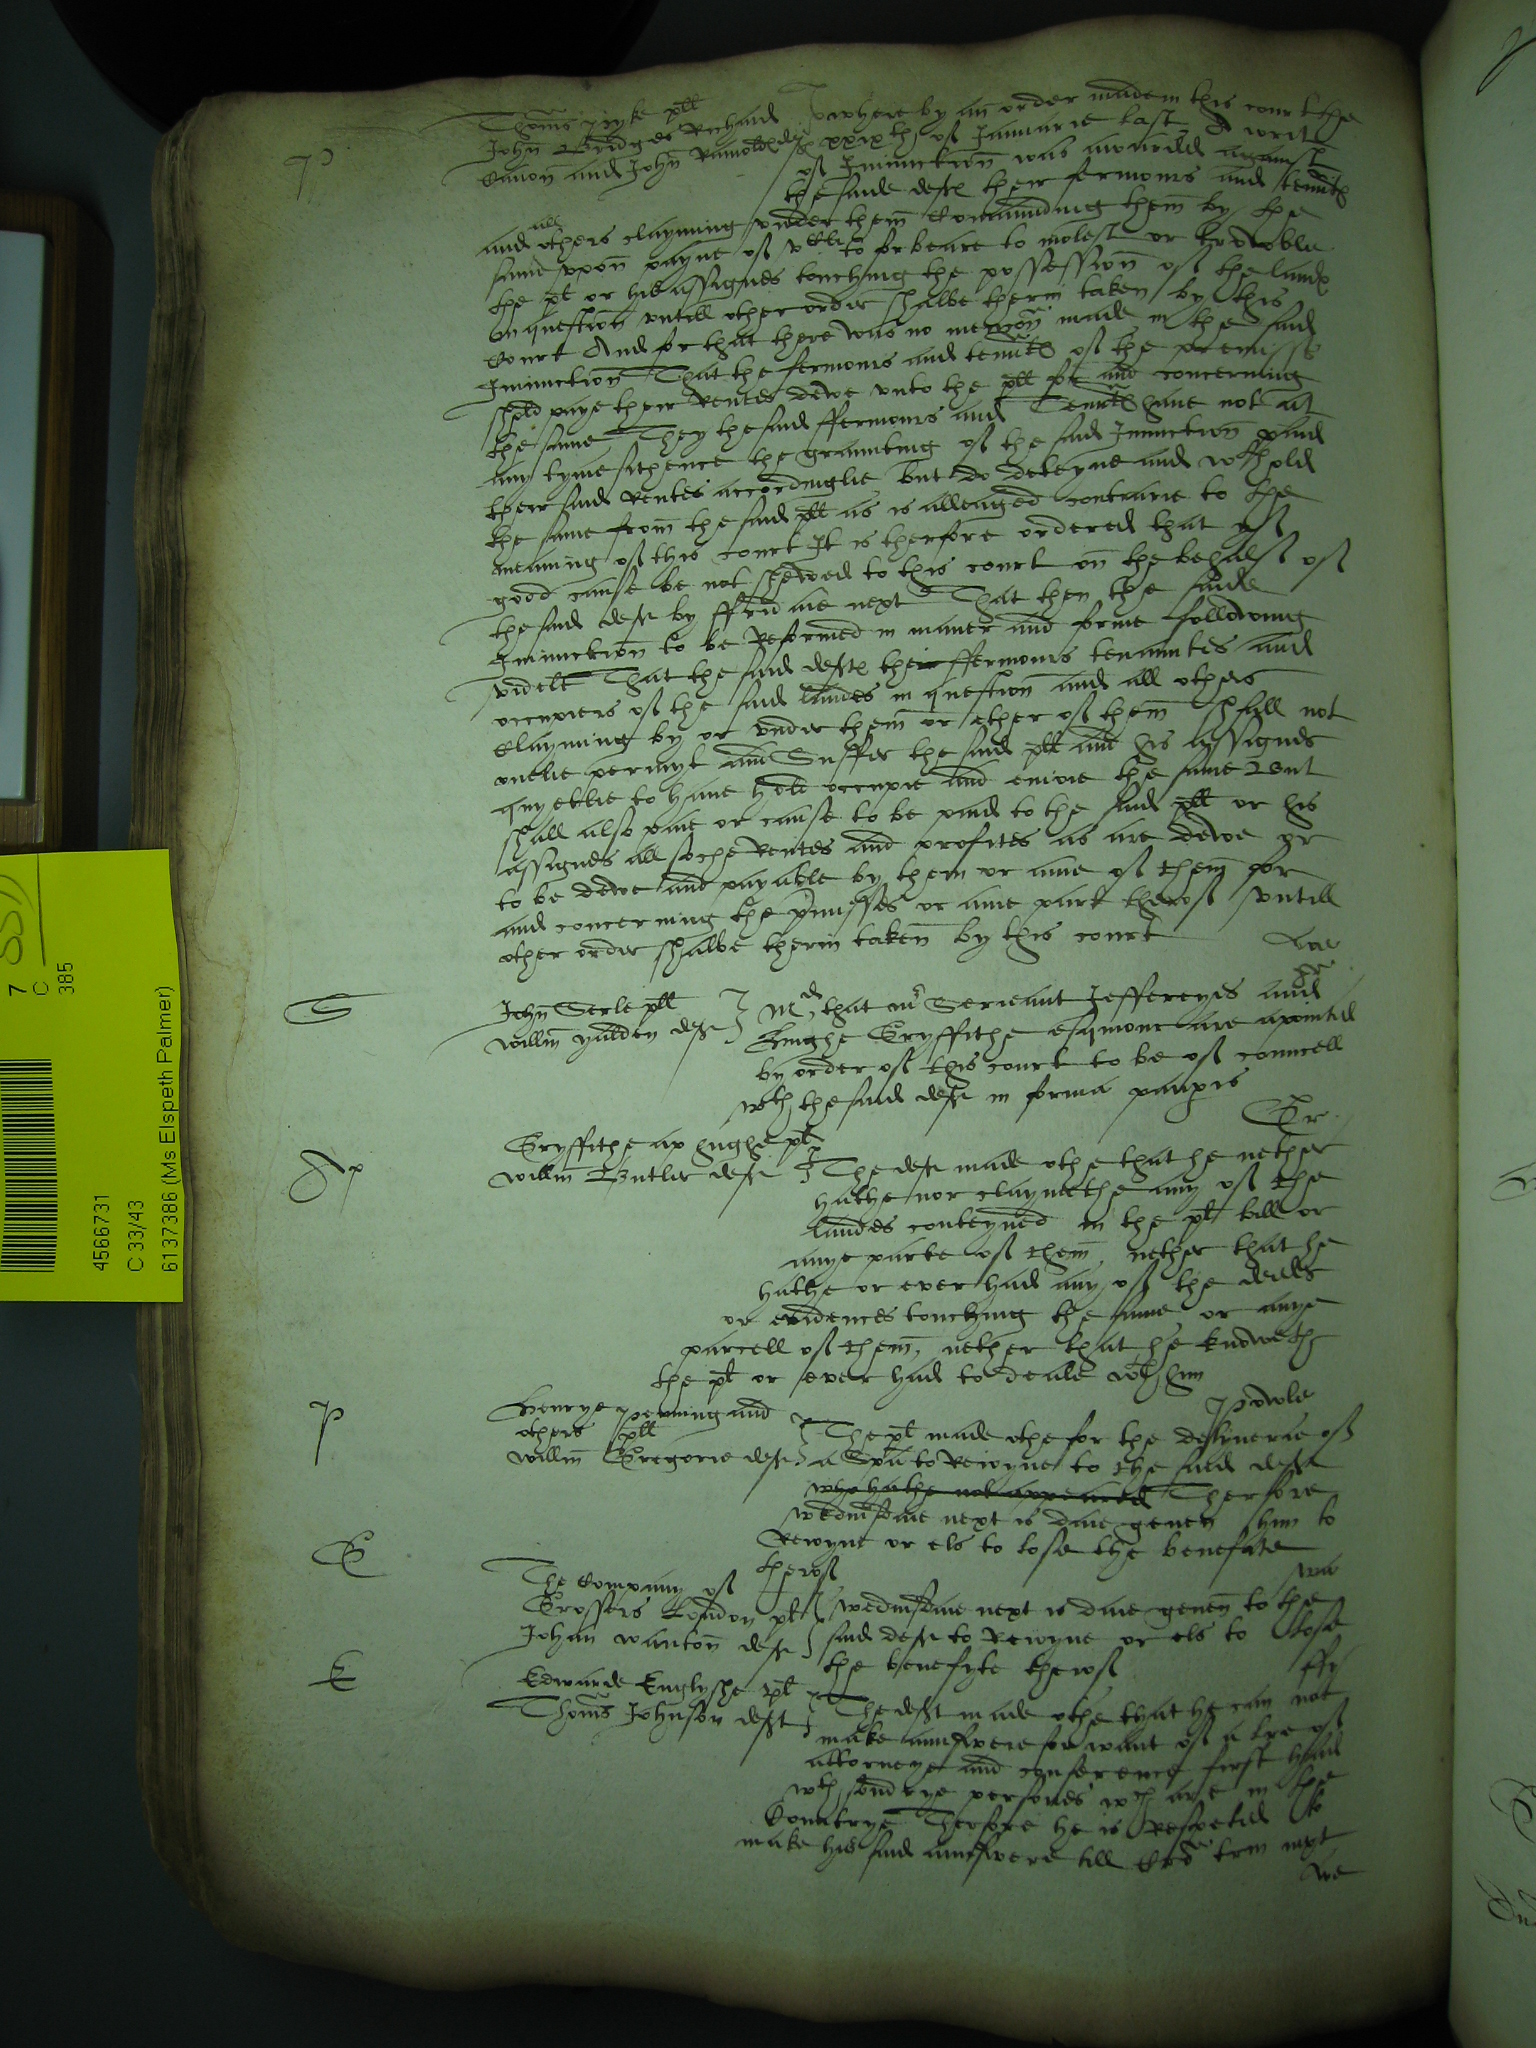 P
Thoms pyke plt
John Bridges Richard
Canon and John Rainolds defts
where by an order made in this court the
xxixth of Januarie last A writ
of Iniunction was awarded against
the saide deftes their fermours and tenntes
and all others clayming vnder them Comaunding them by the
same vpon payne of vcli to forbeare to molest or trowble
the plt or his assignes touching the possession of the landes
in question vntill other order shalbe therin taken by this
Court And for that there was no mencon made in the said
Iniunction That the fermours and tenntes of the premisses
shold paye their Rentes dewe vnto the plt for and concerning
the same They the said ffermours and Tenntes haue not at
any tyme sithence the graunting of the said Iniunction paid
their said Rentes accordinglie But do deteyne and wthold
the same from the said plt as is alleaged contrarie to the
meaning of this court It is therfore ordered that yf
good cause be not shewed to this court on the behalf of
the said deft by ffridaie next That then the saide
Iniunction to be Reformed in maner and forme following
videlt That the said deftes their ffermours tenauntes and
occupiers of the said landes in question and all others
Clayming by or vnder them or ether of them shall not
onelie permyt and Suffer the said plt and his assignes
quyetlie to haue hold occupie and enioie the same But
shall also paie or cause to be paid to the said plt or his
assignes all soche Rentes and profites as are dewe or
to be dewe and payable by them or anie of them for
and concerning the pmisses or anie part therof vntill
other order shalbe therin taken by this court
S
John Serle plt
Willm yalden deft
Md that mr Serieant Jeffereyes and mr
Hughe Gryffithe esqmore are apointed
by order of this court to be of councell
wth the said deft in forma paupis
Gr
Gryffithe ap hughe plt
Willm Butler deft
The deft made othe that he nether
hathe nor claymethe any of the
landes conteyned in the plt bill or
anye parte of them nether that he
hathe or ever had any of the deedes
or evidences touching the same or anye
parcell of them, nether that he knoweth
the plt or ever had to deale wth him
Powle
P
Henrye perning and
others plt
Willm Gregorie deft
The plt made othe for the delyuerie of
a Spa to Reioyne to the said deft
who hathe not appeared Therfore
wednesdaie next is daie geuen him to
Reioyne or els to lose the benefate
therof
wa
G
The Company of
Grossers London plt
Johan wanton deft
wednesdaie next is daie geuen to the
said deft to Reioyne or els to lose
the benefyte therof
ffy
E
Edwarde Englyshe plt
Thoms Johnson deft
The deft made othe that he can not
make aunswere for want of a lre of
attorneye and conference first had
wth sondrye persones wch are in the
Countrye Therfore he is Respected to
make his said aunswere till Cro trm next
we
7
C
385
4566731
C 33/43
6137386 (Ms Elspeth Palmer)